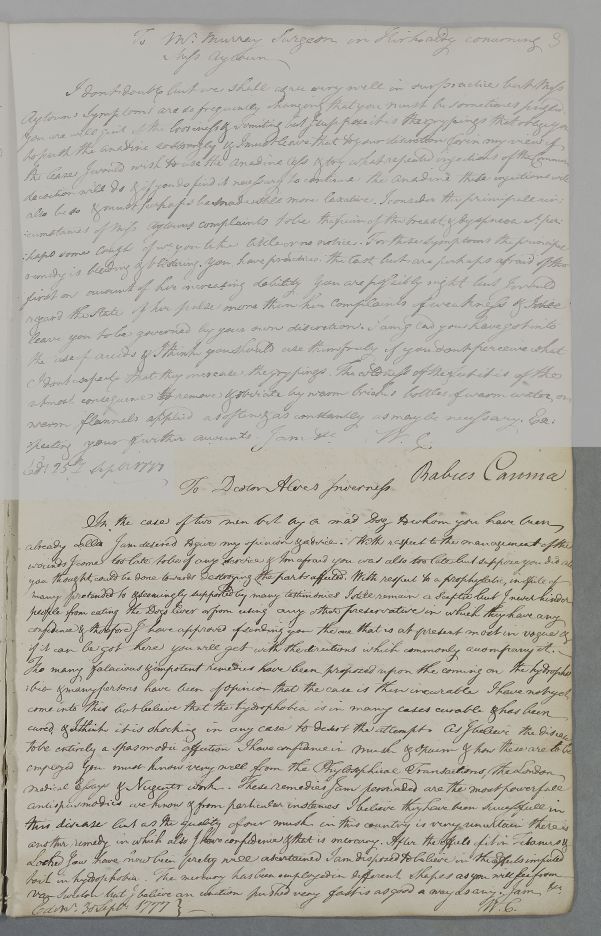 To Mr. Murray Surgeon in Kirkcaldy concerning 3
Miss Aytoun
I dont doubt but we shall agree very well in our practice but Miss
Aytouns Symptoms are so frequently changing that you must be sometimes puzled.
You are in the right at the looseness & vomiting but I suspect it is the gripings that oblige you
to push the anodine so strongly & I must leave that to your discretion for in my view of
the case I would wish to use the anodine less & try what repeated injections of the Common
decoction will do & if you do find it necessary to continue the anodine these injections will
also be so & must perhaps be made a little more laxative. I consider the principall cir-
cumstances of Miss Aytouns complaints to be the pain of the breast & dyspnoea & per-
haps some cough of wc you take little or no notice. For these Symptoms the principle
remedy is bleeding & blistering. You have practiced the last but are perhaps afraid of the
first on account of her increasing debility You are possibly right but I would
regard the State of her pulse more than her complaints of weakness & I
leave you to be governed by your own discretion. I am glad you have got into
the use of acids & I think you should use them freely if you dont perceive what
I dont expect that they increase the gripings. The coldness of the feet it is of the
utmost consequence to remove & obviate by warm bricks bottles of warm water, or
warm flannels applied as often & as constantly as may be necessary. Ex-
pecting your further accounts. I am &c W. C.
Edr. 25th Septr 1777
To Doctor Alves Inverness. Rabies Canina
In the case of two men bit by a mad Dog to whom you have been
already called I am desired to give my opinion & advice. With respect to the management of the
wounds I come too late to be of any service & I am afraid you was also too late but suppose you did all
you thought could be done towards destroying the part affected. With respect to a prophylactic, in spite of
many pretended & seemingly supported by many testimonies I still remain a Sceptic but I never hinder
people from eating the Dogs liver or from using any other preservative in which they have any
confidence & therefore I have approved of sending you the one that is at present most in vogue &
if it can be got here you will get with the directions which commonly accompany it.
Tho many falacious & impotent remedies have been proposed upon the coming on the hydropho-
bia & many persons have been of opinion that the case is then incurable I have not yet
come into this but believe that the hydrophobia is in many cases curable & has been
cured & I think it is shocking in any case to desert the attempt. As I believe the disease
to be entirely a spasmodic affection I have confidence in musk & opium & how these are to be
employed you must know very well from the Phylosophical Transactions, the London
medical Essays & Nugents work. These remedies I am perswaded are the most powerfull
antispasmodics we know & from particular instances I believe they have been successfull in
this disease but as the quality of our musk in this country is very uncertain there is
another remedy in which also I have confidence & that is mercury. After the effects of it in Tetanus &
Locked Jaw have now been pretty well ascertained I am disposed to believe in the effects imputed
to it in hydrophobia. The mercury has been employed in different shapes as you will see from
Van Swieten but I believe an unction pushed very fast is as good a way as any. I am &c
Edinr. 30 Septr. 1777 W. C.